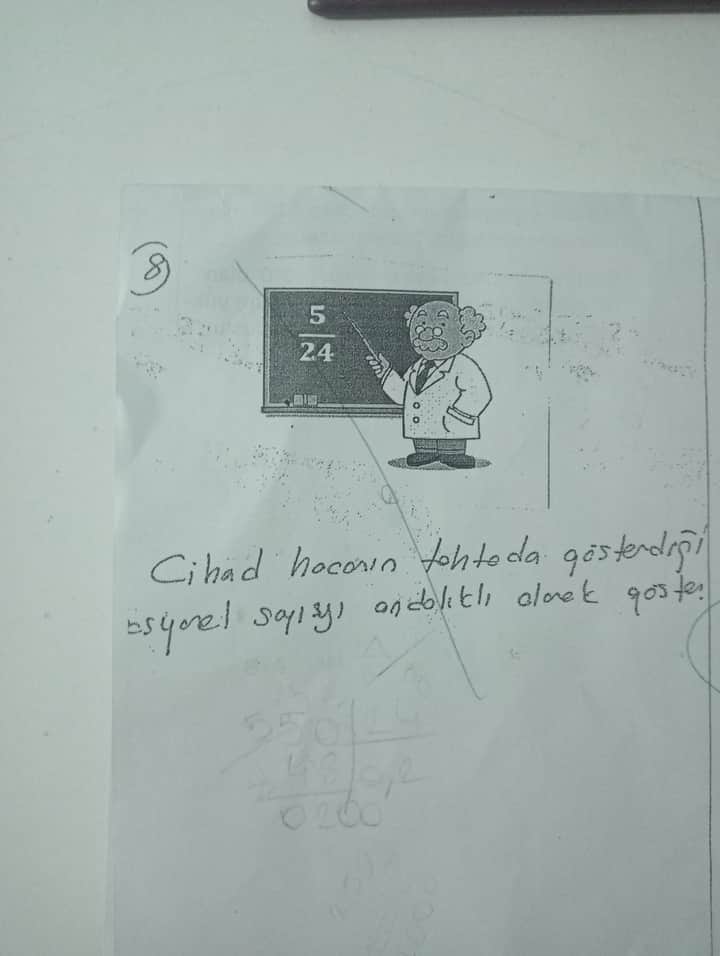 8
5
24
Cihad hocanın tahtada gösterdiği
syonel sayıyı ondalıklı olarak göster
550 24
48 0,2
0200